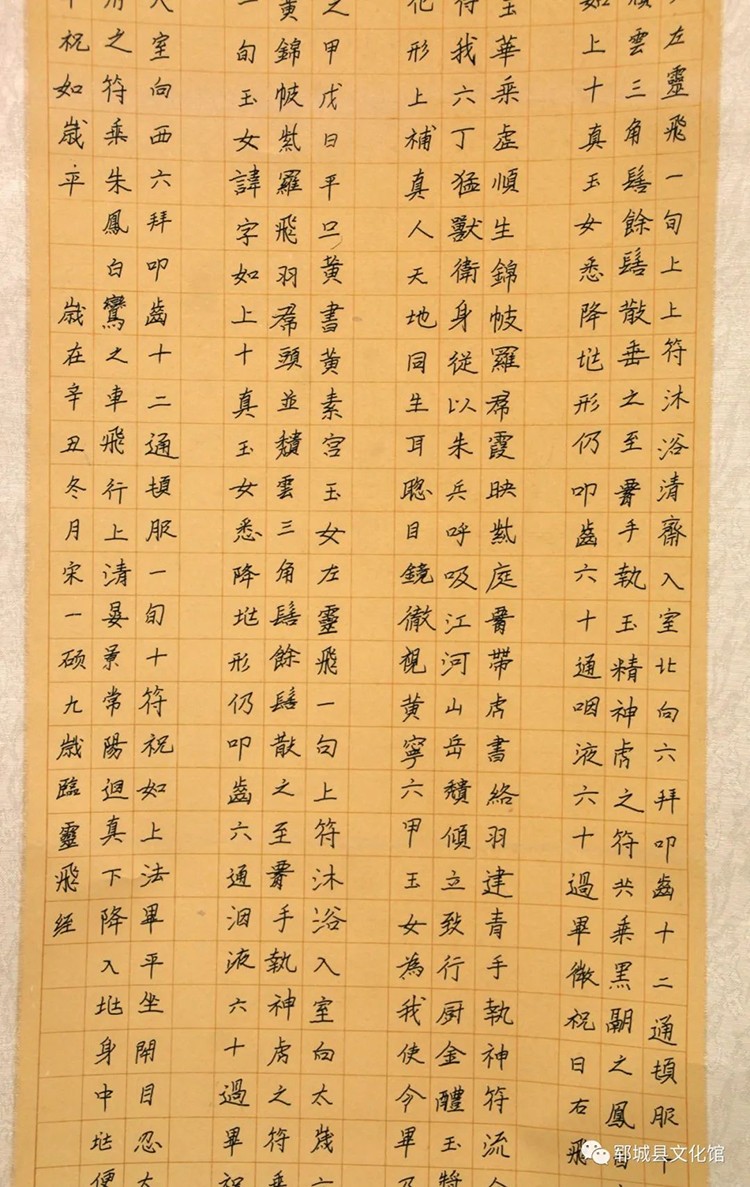 左靈飛一旬上上符沐浴清齋入室北向六拜叩齒十二通頓服十
頹雲三角髻餘髻散垂之至要手執玉精神虎之符共乘黑翮之鳳白
如上十真玉女悉降垗形仍叩齒六十通咽液六十過畢微祝曰右飛
玉華乘虛順生錦帔羅帬霞映紫庭要帶虎書絡羽建青手執神符流
待我六丁猛獸衛身從以朱兵呼吸江河山岳頹傾立致行厨金醴玉漿
化形上補真人天地同生耳聰目鏡徹視黃寧六甲玉女為我使令畢乃
之甲戌日平旦黃書黃素宮玉女左靈飛一旬上符沐浴入室向太歲六
黃錦帔紫羅飛羽帬頭並頹雲三角髻餘髻散之至要手執神虎之符乘
一旬玉女諱字如上十真玉女悉降垗形仍叩齒六通咽液六十過畢祝
室向西六拜叩齒十二通頓服一旬十符祝如上法畢平坐閉目忍
之符乘朱鳳白鸞之車飛行上清晏景常陽迴真下降入垗身中垗便
祝如歲平 歲在辛丑冬月宋一碩九歲臨靈飛經
郓城县文化馆